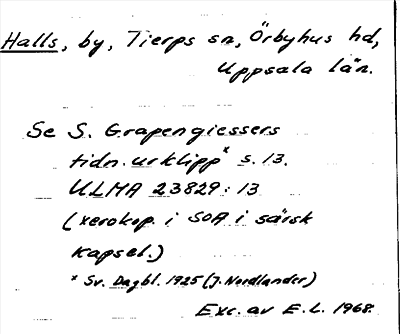 Halls, by, Tierps sn, Örbyhus hd,
Uppsala län.
Se S. Grapengiessers
tidn.urklipp* s. 13.
ULMA 23829:13
(xerokop. i SOA i särsk
kapsel.)
* Sv. Dagbl. 1925 (J. Nordlander)
Exc. av E.L. 1968.